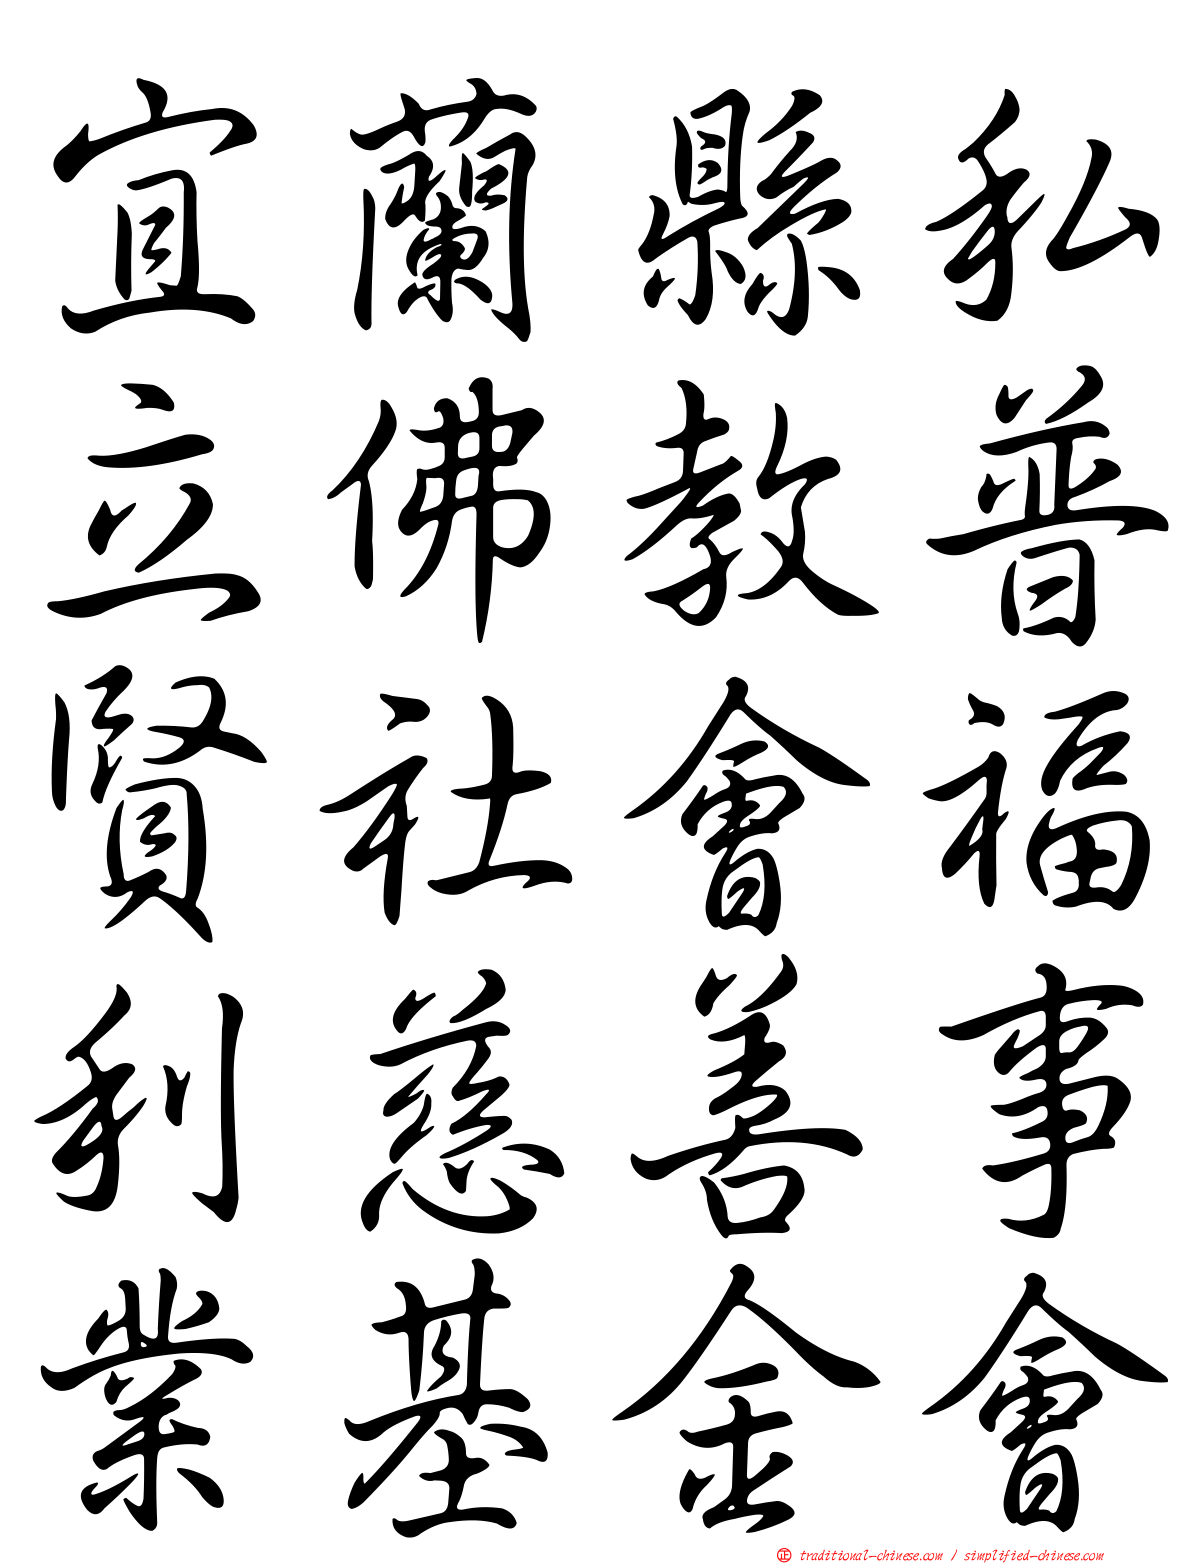 宜蘭縣私
立佛教普
賢社會福
利慈善事
業基金會
㊣ traditional-chinese.com / simplified-chinese.com